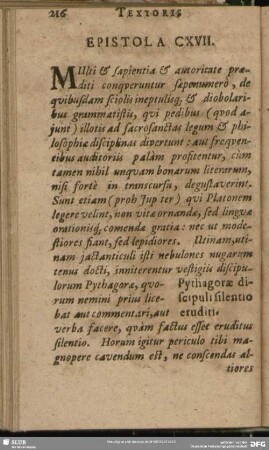 216 TEXTORIS
EPISTOLA CXVII.
MUlti & sapientia & autoritate præ-
diti conqveruntur sæpenumerò, de
qvibusdam sciolis ineptulisq; & diobolari-
bus grammatistis, qvi pedibus (qvod a-
junt) illotis ad sacrosanctas legum & phi-
losophiæ disciplinas divertunt: aut freqven-
tibus auditoriis palàm profitentur, cùm
tamen nihil unqvam bonarum literarum,
nisi fortè in transcursu, degustaverint.
Sunt etiam (proh Jup ter) qvi Platonem
legere velint, non vitæ ornandæ, sed linguæ
orationisq; comendæ gratia: nec ut mode-
stiores fiant, sed lepidiores. Utinam, uti-
nam jactanticuli isti nebulones nugarum
tenus docti, inniterentur vestigiis discipu-
lorum Pythagoræ, qvo-
rum nemini prius lice-
bat aut commentari, aut
Pythagoræ di-
scipuli silentio
eruditi.
verba facere, qvàm factus esset eruditus
silentio. Horum igitur periculo tibi ma-
gnopere cavendum est, ne conscendas al-
tiores
SLUB
DFG